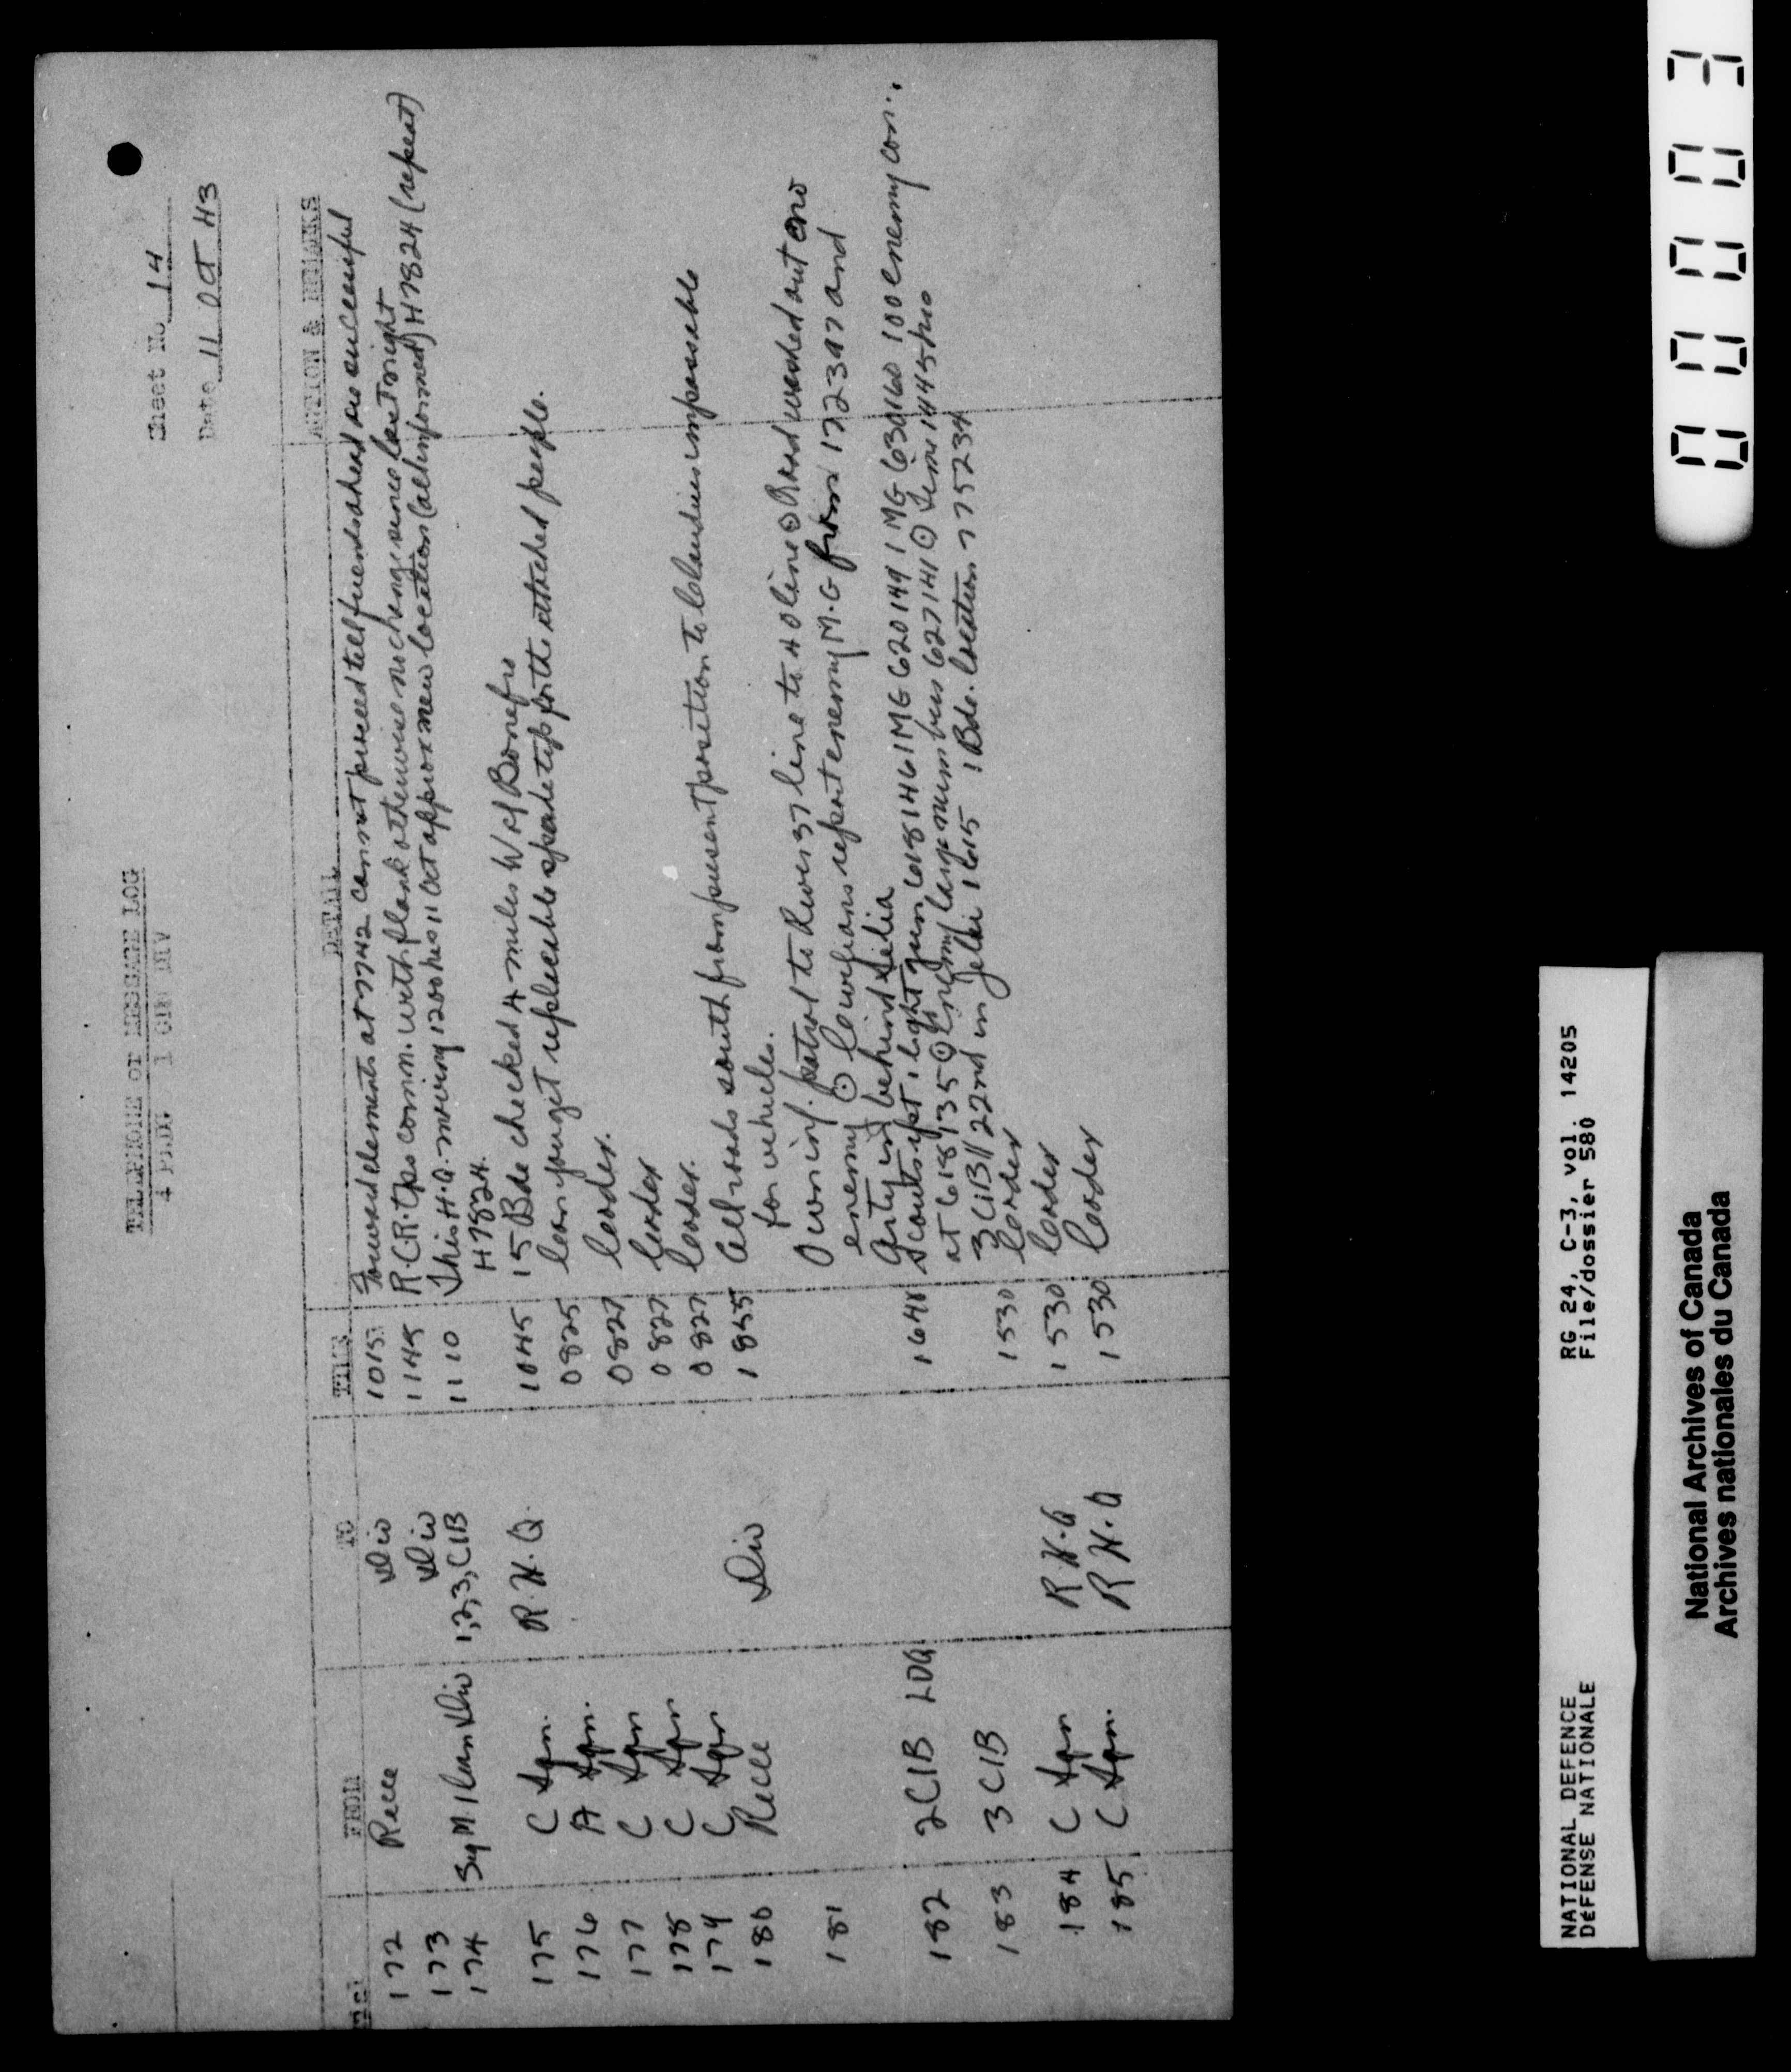 TELEPHONE or MESSAGE LOG
4 PLDG 1 CDN DIV
Sheet No 14
Date 11 Oct 43
FROM TO TIME DETAIL ACTION & REMARKS
172 Recce Div 1015 Forward elements at 7742 cannot proceed till friends ahead are successful
173 Div 1145 R.C.R. tps comm. with flank otherwise no change since last night
174 1 Can Div 1,2,3, CIB 1110 This H.Q. moving 1200 hrs 11 Oct approx new location (all informed) H7824 (repeat)
H7824.
175 C Sqn. R.H.Q. 1045 15 Bde checked 4 miles W of Bonefro
176 A Sqn. 0825 Can you get replaceable spade tips for the attached people.
177 C Sqn 0827 loader.
178 C Sqn 0827 loader
179 C Sqn 0827 loader.
180 Recce Div 1855 All roads south from present position to impassable
for vehicles.
181 Own inf. patrol to River 37 line to 40 line ⊙ Road washed out and
enemy ⊙ Civilians report enemy M.G from 172397 and
Arty in behind
182 2 CIB LOG 1640 scouts rpt 1 light gun 618146 1 MG 620149 1 MG 630160 100 enemy con..
at 618135 ⊙ enemy large numbers 627141 ⊙ time 1445 hrs
183 3 CIB 1530 3 CIB // 22nd in Jelsi 1615 1 Bde. location 775234
loader
184 C Sqn R.H.Q 1530 loader
185 C Sqn. R.H.Q 1530 loader
NATIONAL DEFENCE RG 24, C-3, vol. 14205
DéFENSE NATIONALE File/dossier 580
National Archives of Canada
Archives nationales du Canada
00003